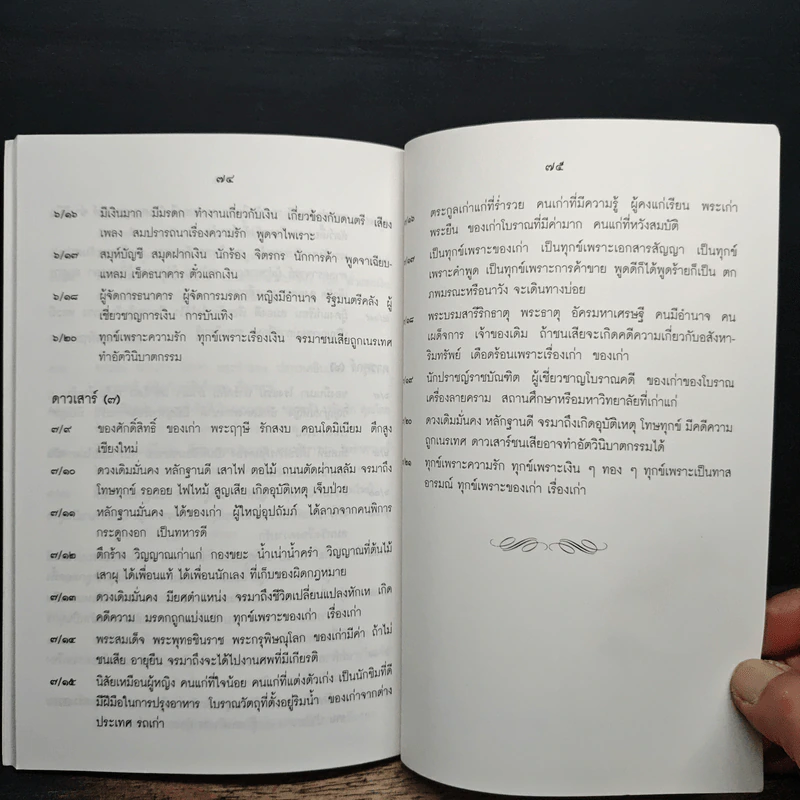 ๗๔
๖/๑๖ มีเงินมาก มีมรดก ทำงานเกี่ยวกับเงิน เกี่ยวข้องกับดนตรี เสียง
เพลง สมปรารถนาเรื่องความรัก พูดจาไพเราะ
๖/๑๗ สมุห์บัญชี สมุดฝากเงิน นักร้อง จิตรกร นักการค้า พูดจาเฉียบ-
แหลม เช็คธนาคาร ตั๋วแลกเงิน
๖/๑๘ ผู้จัดการธนาคาร ผู้จัดการมรดก หญิงมีอำนาจ รัฐมนตรีคลัง ผู้
เชี่ยวชาญการเงิน การบันเทิง
๖/๒๐ ทุกข์เพราะความรัก ทุกข์เพราะเรื่องเงิน จรมาชนเสียถูกเนรเทศ
ทำอัตวินิบาตกรรม
ดาวเสาร์ (๗)
๗/๙ ของศักดิ์สิทธิ์ ของเก่า พระฤๅษี รักสงบ คอนโดมิเนียม ตึกสูง
เชียงใหม่
๗/๑๐ ดวงเดิมมั่นคง หลักฐานดี เสาไฟ ตอไม้ ถนนตัดผ่านสลัม จรมาถึง
โทษทุกข์ รอคอย ไฟไหม้ สูญเสีย เกิดอุบัติเหตุ เจ็บป่วย
๗/๑๑ หลักฐานมั่นคง ได้ของเก่า ผู้ใหญ่อุปถัมภ์ ได้ลาภจากคนพิการ
กระดูกงอก เป็นทหารดี
๗/๑๒ ตึกร้าง วิญญาณเก่าแก่ กองขยะ น้ำเน่าน้ำครำ วิญญาณที่ต้นไม้
เสาผุ ได้เพื่อนแท้ ได้เพื่อนนักเลง ที่เก็บของผิดกฎหมาย
๗/๑๓ ดวงเดิมมั่นคง มียศตำแหน่ง จรมาถึงชีวิตเปลี่ยนแปลงหักเห เกิด
คดีความ มรดกถูกแบ่งแยก ทุกข์เพราะของเก่า เรื่องเก่า
๗/๑๔ พระสมเด็จ พระพุทธชินราช พระกรุพิษณุโลก ของเก่ามีค่า ถ้าไม่
ชนเสีย อายุยืน จรมาถึงจะได้ไปงานศพที่มีเกียรติ
๗/๑๕ นิสัยเหมือนผู้หญิง คนแก่ที่ใจน้อย คนแก่ที่แต่งตัวเก่ง เป็นนักชิมที่ดี
มีฝีมือในการปรุงอาหาร โบราณวัตถุที่ตั้งอยู่ริมน้ำ ของเก่าจากต่าง
ประเทศ รถเก่า
๗๕
/๑๖ ตระกูลเก่าแก่ที่ร่ำรวย คนเก่าที่มีความรู้ ผู้คงแก่เรียน พระเก่า
พระยืน ของเก่าโบราณที่มีค่ามาก คนแก่ที่หวังสมบัติ
/๑๗ เป็นทุกข์เพราะของเก่า เป็นทุกข์เพราะเอกสารสัญญา เป็นทุกข์
เพราะคำพูด เป็นทุกข์เพราะการค้าขาย พูดดีก็ได้พูดร้ายก็เป็น ตก
ภพมรณะหรือนาวัง จะเดินทางบ่อย
/๑๘ พระบรมสารีริกธาตุ พระธาตุ อัครมหาเศรษฐี คนมีอำนาจ คน
เผด็จการ เจ้าของเดิม ถ้าชนเสียจะเกิดคดีความเกี่ยวกับอสังหา-
ริมทรัพย์ เดือดร้อนเพราะเรื่องเก่า ของเก่า
/๑๙ นักปราชญ์ราชบัณฑิต ผู้เชี่ยวชาญโบราณคดี ของเก่าของโบราณ
เครื่องลายคราม สถานศึกษาหรือมหาวิทยาลัยที่เก่าแก่
/๒๐ ดวงเดิมมั่นคง หลักฐานดี จรมาถึงเกิดอุบัติเหตุ โทษทุกข์ มีคดีความ
ถูกเนรเทศ ดาวเสาร์ชนเสียอาจทำอัตวินิบาตกรรมได้
/๒๑ ทุกข์เพราะความรัก ทุกข์เพราะเงิน ๆ ทอง ๆ ทุกข์เพราะเป็นทาส
อารมณ์ ทุกข์เพราะของเก่า เรื่องเก่า